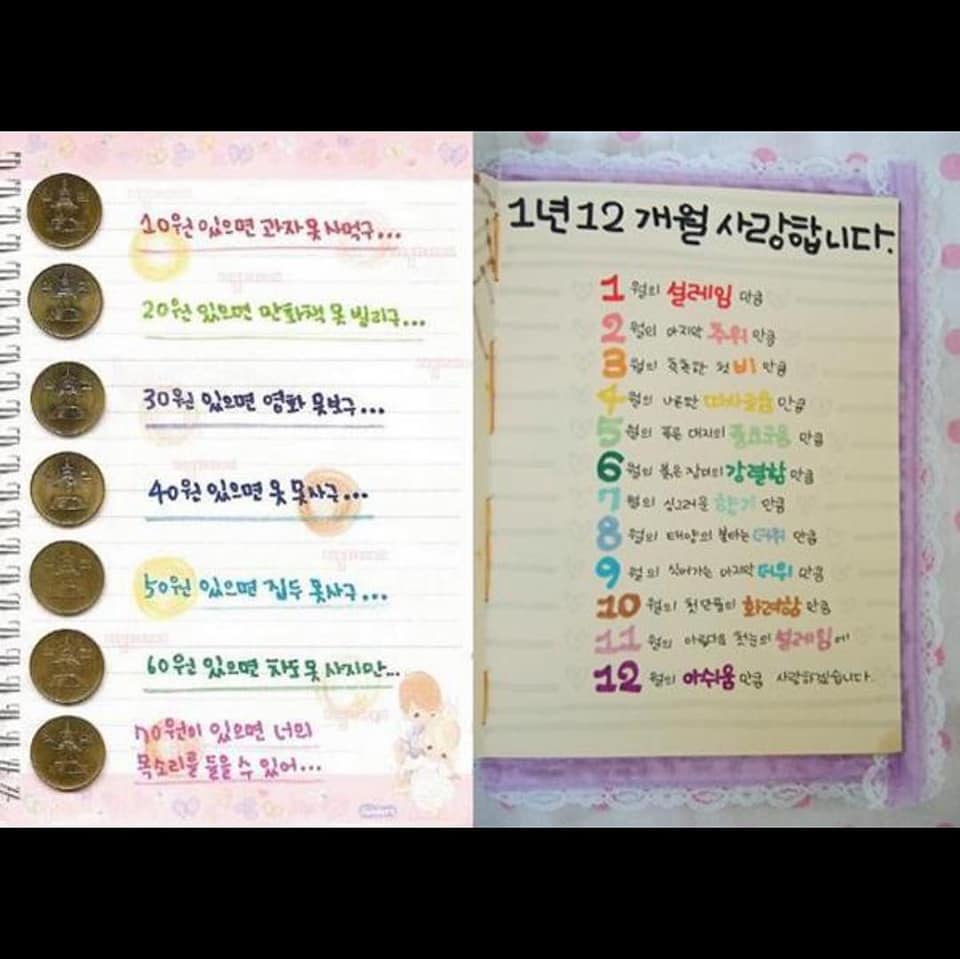 10원 있으면 과자 못 사먹구...
20원 있으면 만화책 못 빌리구...
30원 있으면 영화 못보구...
40원 있으면 옷 못사구...
50원 있으면 집두 못사구...
60원 있으면 차도 못 사지만...
70원이 있으면 너의
목소리를 들을 수 있어...
1년 12개월 사랑합니다.
1월의 설레임 만큼
2월의 마지막 추위 만큼
3월의 촉촉한 첫 비 만큼
4월의 나른한 따사로움 만큼
5월의 푸른 대지의 풍요로움 만큼
6월의 붉은 장미의 강렬함 만큼
7월의 싱그러운 향기 만큼
8월의 태양의 불타는 더위 만큼
9월의 식어가는 마지막 더위 만큼
10월의 첫단풍의 화려함 만큼
11월의 아름다운 첫눈의 설레임에
12월의 아쉬움 만큼 사랑하겠습니다.